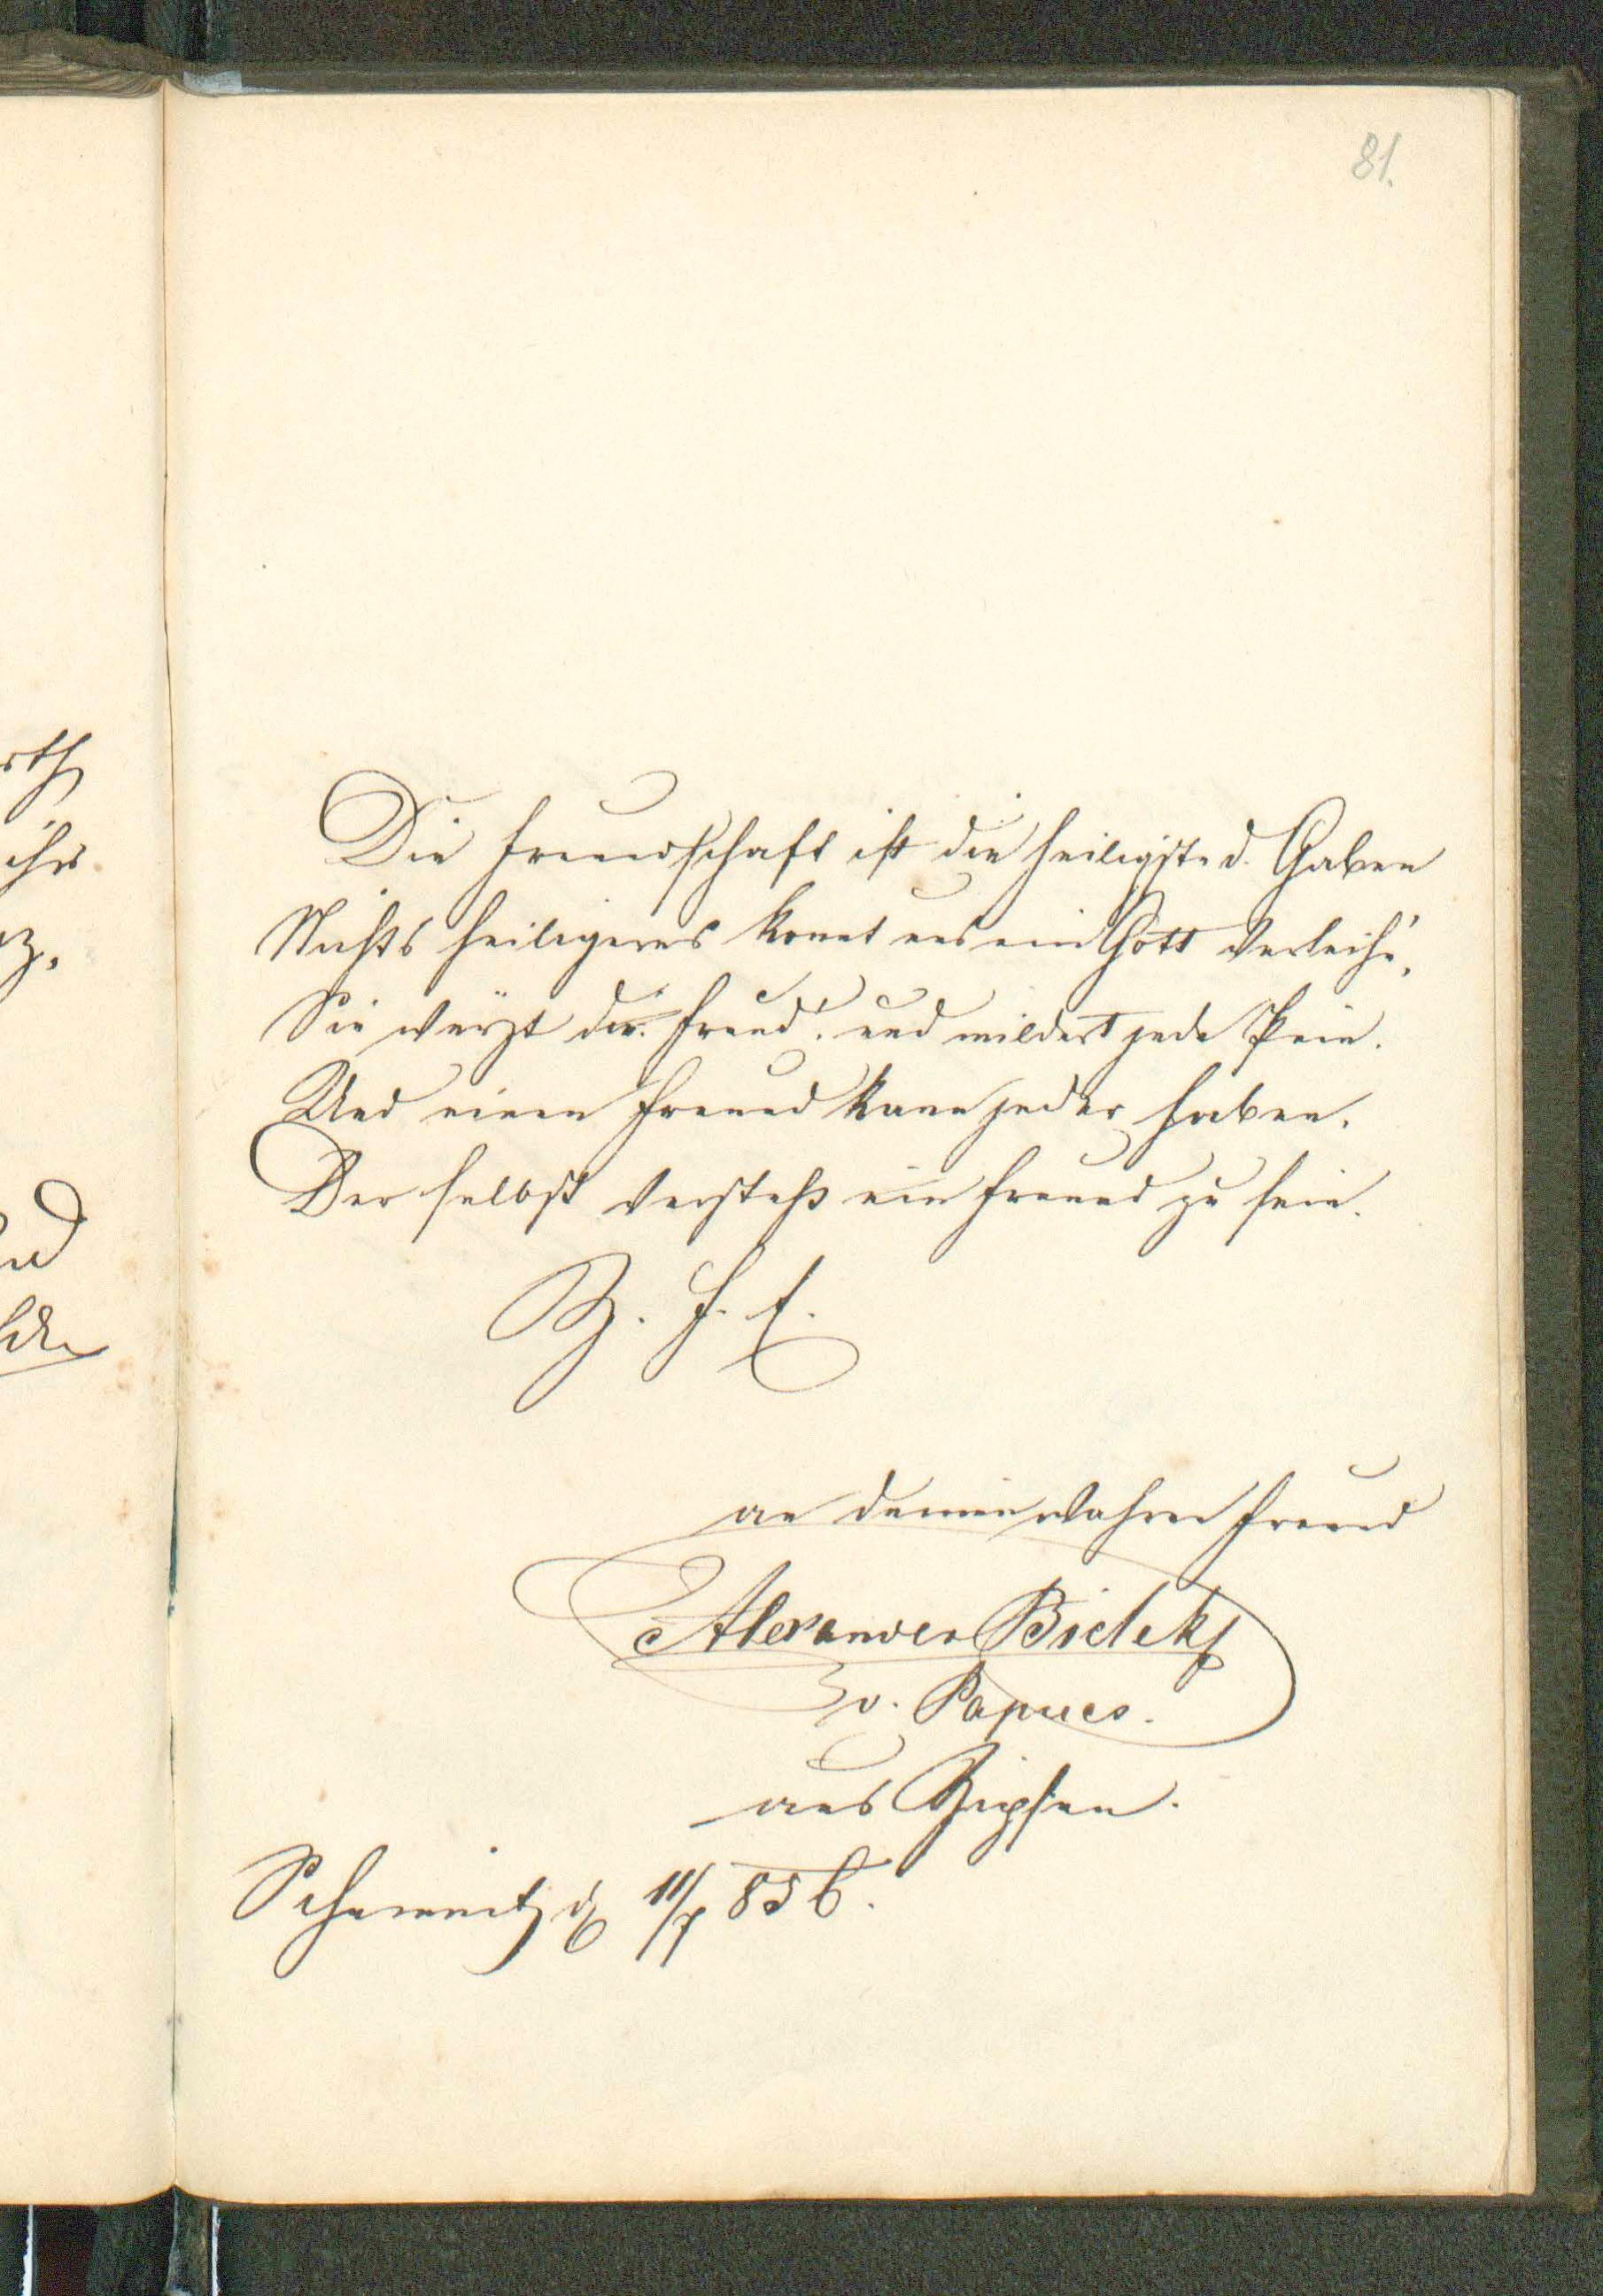 81.
Die Freundschaft ist die heiligste d. Gaben
Nichts heiligeres konnt uns ein Gott verleih'n,
Sie würzt die Freud'. und mildert jede Pein.
Und einen Freund kann jeder haben.
Der selbst versteht ein Freund zu sein.
Z. f. E.
an deinen wahren Freund
Alexander Bielek
v. Papucs.
aus Zipsen.
Schemnitz d 11/7 856.